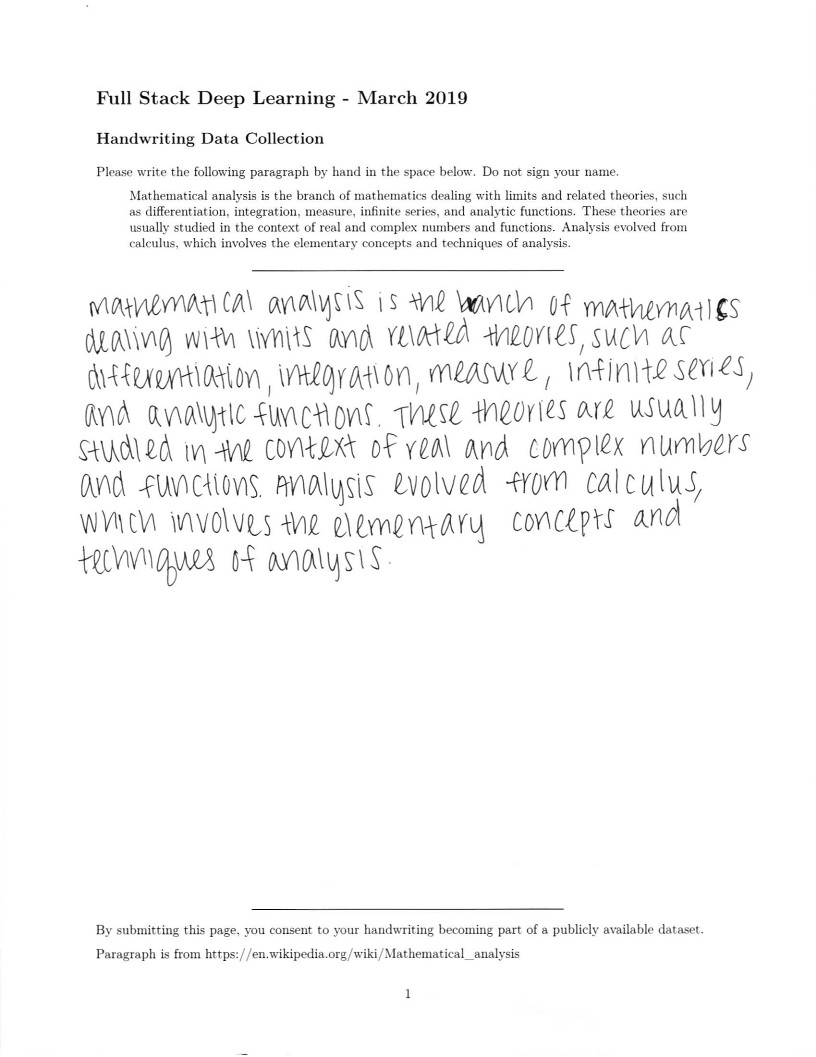 Full Stack Deep Learning - March 2019
Handwriting Data Collection
Please write the following paragraph by hand in the space below. Do not sign your name.
Mathematical analysis is the branch of mathematics dealing with limits and related theories, such
as differentiation, integration, measure, infinite series, and analytic functions. These theories are
usually studied in the context of real and complex numbers and functions. Analysis evolved from
calculus, which involves the elementary concepts and techniques of analysis.
mathematical analysis is the banch of mathematics
dealing with limits and related theories, such as
differentiation, integration, measure, infinite series,
and analytic functions. These theories are usually
studied in the context of real and complex numbers
and functions. Analysis evolved from calculus,
which involves the elementary concepts and
techniques of analysis.
By submitting this page, you consent to your handwriting becoming part of a publicly available dataset.
Paragraph is from https://en.wikipedia.org/wiki/Mathematical_analysis
1